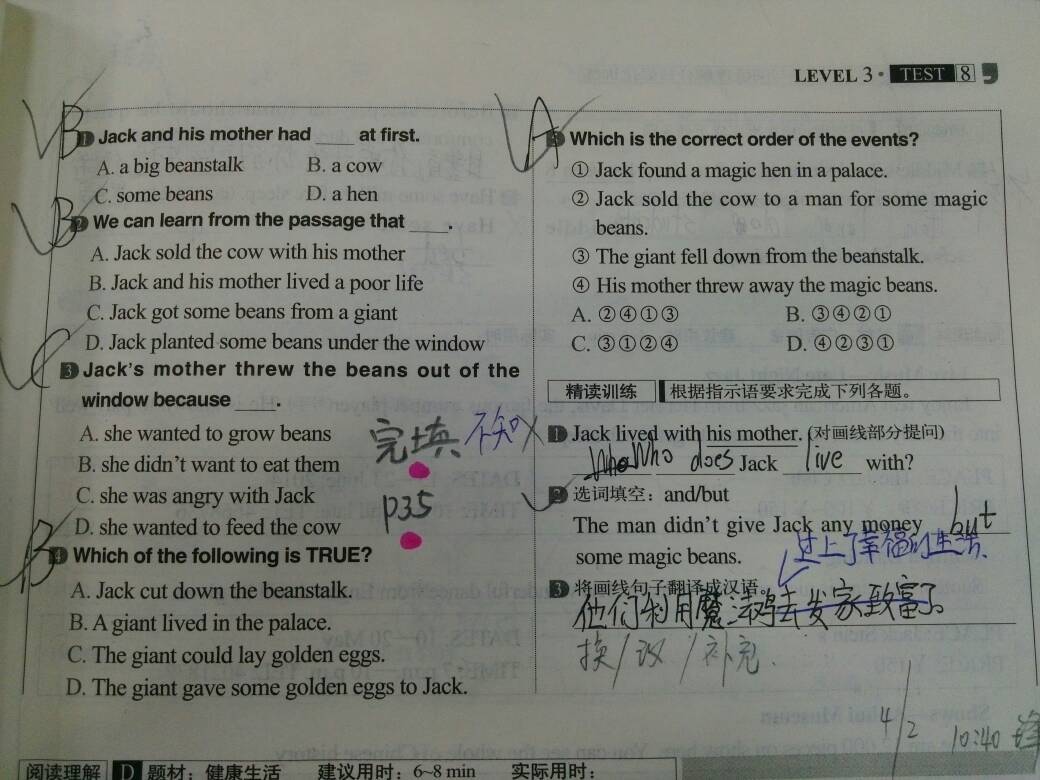 LEVEL 3 · TEST 8
B 1 Jack and his mother had ___ at first.
A. a big beanstalk B. a cow
C. some beans D. a hen
B 2 We can learn from the passage that ____.
A. Jack sold the cow with his mother
B. Jack and his mother lived a poor life
C. Jack got some beans from a giant
D. Jack planted some beans under the window
C 3 Jack's mother threw the beans out of the
window because ____.
A. she wanted to grow beans
B. she didn't want to eat them
C. she was angry with Jack
D. she wanted to feed the cow
完填
P35
B 4 Which of the following is TRUE?
A. Jack cut down the beanstalk.
B. A giant lived in the palace.
C. The giant could lay golden eggs.
D. The giant gave some golden eggs to Jack.
A 5 Which is the correct order of the events?
① Jack found a magic hen in a palace.
② Jack sold the cow to a man for some magic
beans.
③ The giant fell down from the beanstalk.
④ His mother threw away the magic beans.
A. ②④①③ B. ③④②①
C. ③①②④ D. ④②③①
精读训练 根据指示语要求完成下列各题。
1 Jack lived with his mother. (对画线部分提问)
Who does Jack live with?
2 选词填空：and/but
The man didn't give Jack any money but
some magic beans.
过上了幸福的生活
3 将画线句子翻译成汉语。
他们利用魔法鸡去发家致富了。
换/改/补充.
4/2 10:40
阅读理解 D 题材：健康生活 建议用时：6~8 min 实际用时：